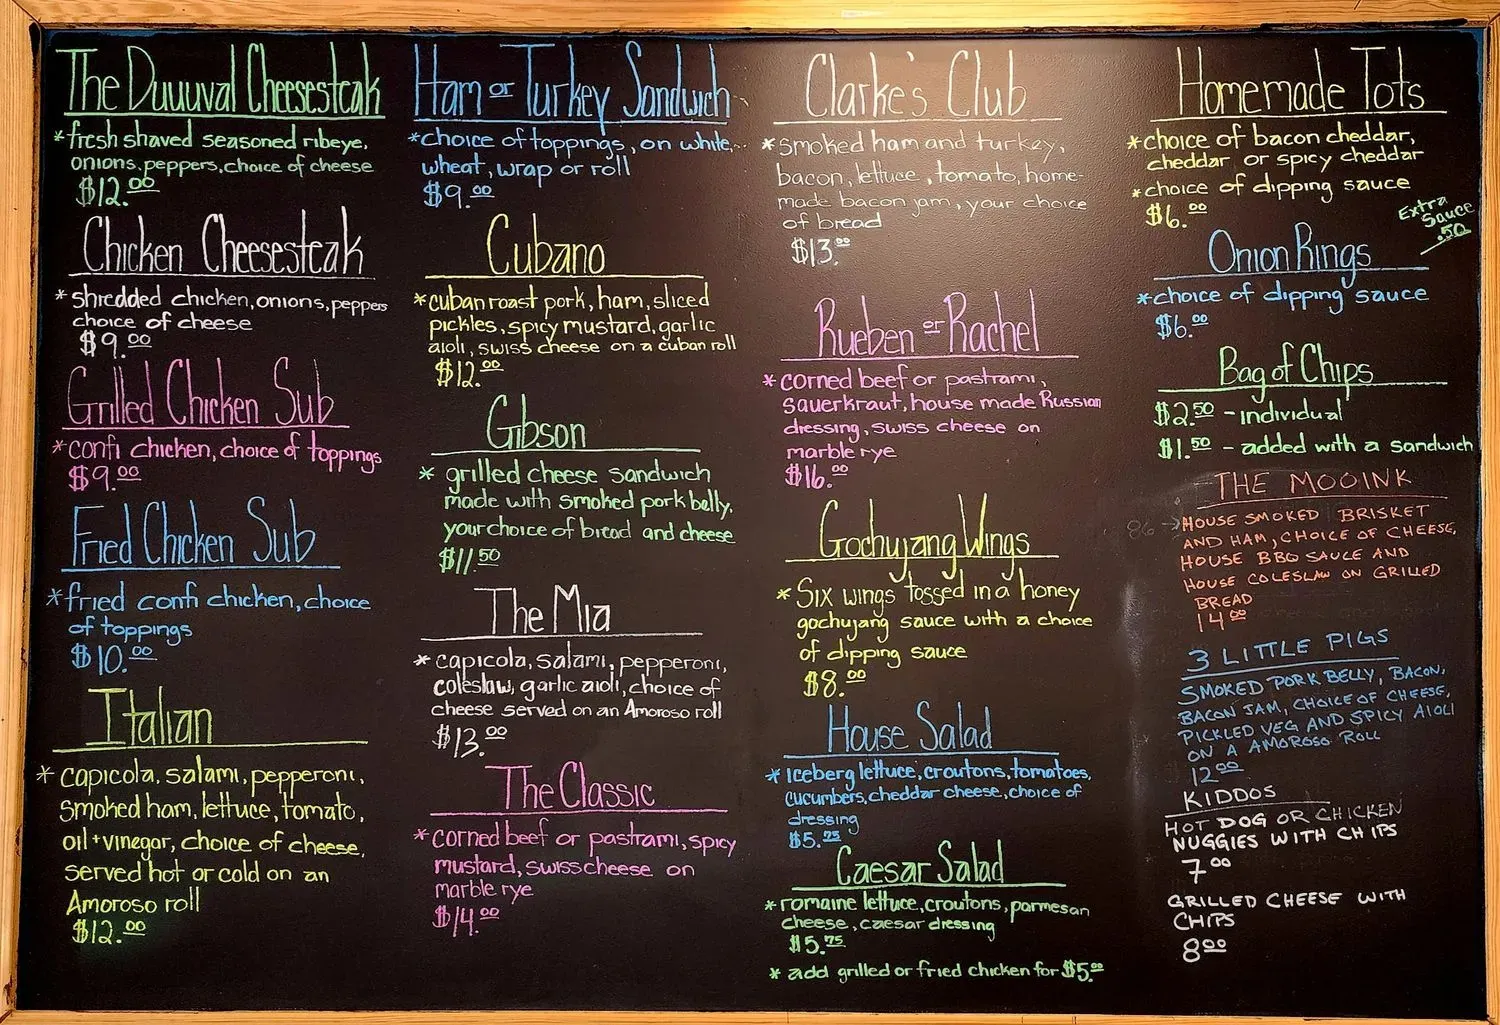 The Duuuval Cheesesteak
*fresh shaved seasoned ribeye,
onions, peppers, choice of cheese
$12.00
Chicken Cheesesteak
*shredded chicken, onions, peppers
choice of cheese
$9.00
Grilled Chicken Sub
*confi chicken, choice of toppings
$9.00
Fried Chicken Sub
*fried confi chicken, choice
of toppings
$10.00
Italian
*capicola, salami, pepperoni,
smoked ham, lettuce, tomato,
oil+vinegar, choice of cheese,
served hot or cold on an
Amoroso roll
$12.00
Ham or Turkey Sandwich
*choice of toppings, on white,
wheat, wrap or roll
$9.00
Cubano
*cuban roast pork, ham, sliced
pickles, spicy mustard, garlic
aioli, swiss cheese on a cuban roll
$12.00
Gibson
* grilled cheese sandwich
made with smoked pork belly,
your choice of bread and cheese
$11.50
The Mia
* capicola, salami, pepperoni,
coleslaw, garlic aioli, choice of
cheese served on an Amoroso roll
$13.00
The Classic
*corned beef or pastrami, spicy
mustard, swiss cheese on
marble rye
$14.00
Clarke's Club
*smoked ham and turkey,
bacon, lettuce, tomato, home-
made bacon jam, your choice
of bread
$13.00
Rueben or Rachel
*corned beef or pastrami,
sauerkraut, house made Russian
dressing, swiss cheese on
marble rye
$16.00
Gochujang Wings
*Six wings tossed in a honey
gochujang sauce with a choice
of dipping sauce
$8.00
House Salad
*iceberg lettuce, croutons, tomatoes,
cucumbers, cheddar cheese, choice of
dressing
$5.75
Caesar Salad
*romaine lettuce, croutons, parmesan
cheese, caesar dressing
$5.75
* add grilled or fried chicken for $5.00
Homemade Tots
*choice of bacon cheddar,
cheddar, or spicy cheddar
*choice of dipping sauce
$6.00
Extra
Sauce
.50
Onion Rings
*choice of dipping sauce
$6.00
Bag of Chips
$2.50 - individual
$1.50 - added with a sandwich
THE MOOINK
86 → HOUSE SMOKED BRISKET
AND HAM, CHOICE OF CHEESE,
HOUSE BBQ SAUCE AND
HOUSE COLESLAW ON GRILLED
BREAD
14.00
3 LITTLE PIGS
SMOKED PORK BELLY, BACON,
BACON JAM, CHOICE OF CHEESE,
PICKLED VEG AND SPICY AIOLI
ON A AMOROSO ROLL
12.00
KIDDOS
HOT DOG OR CHICKEN
NUGGIES WITH CHIPS
7.00
GRILLED CHEESE WITH
CHIPS
8.00